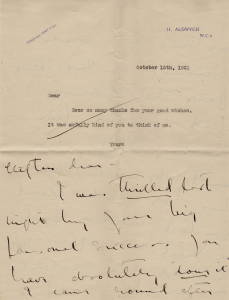 11, ALDWYCH
W.C.2
October 15th, 1921
Dear
Ever so many thanks for your good wishes.
It was awfully kind of you to think of me.
Yours
dear -
I was thrilled last
night by your big
personal success. You
have absolutely done it
I came round after